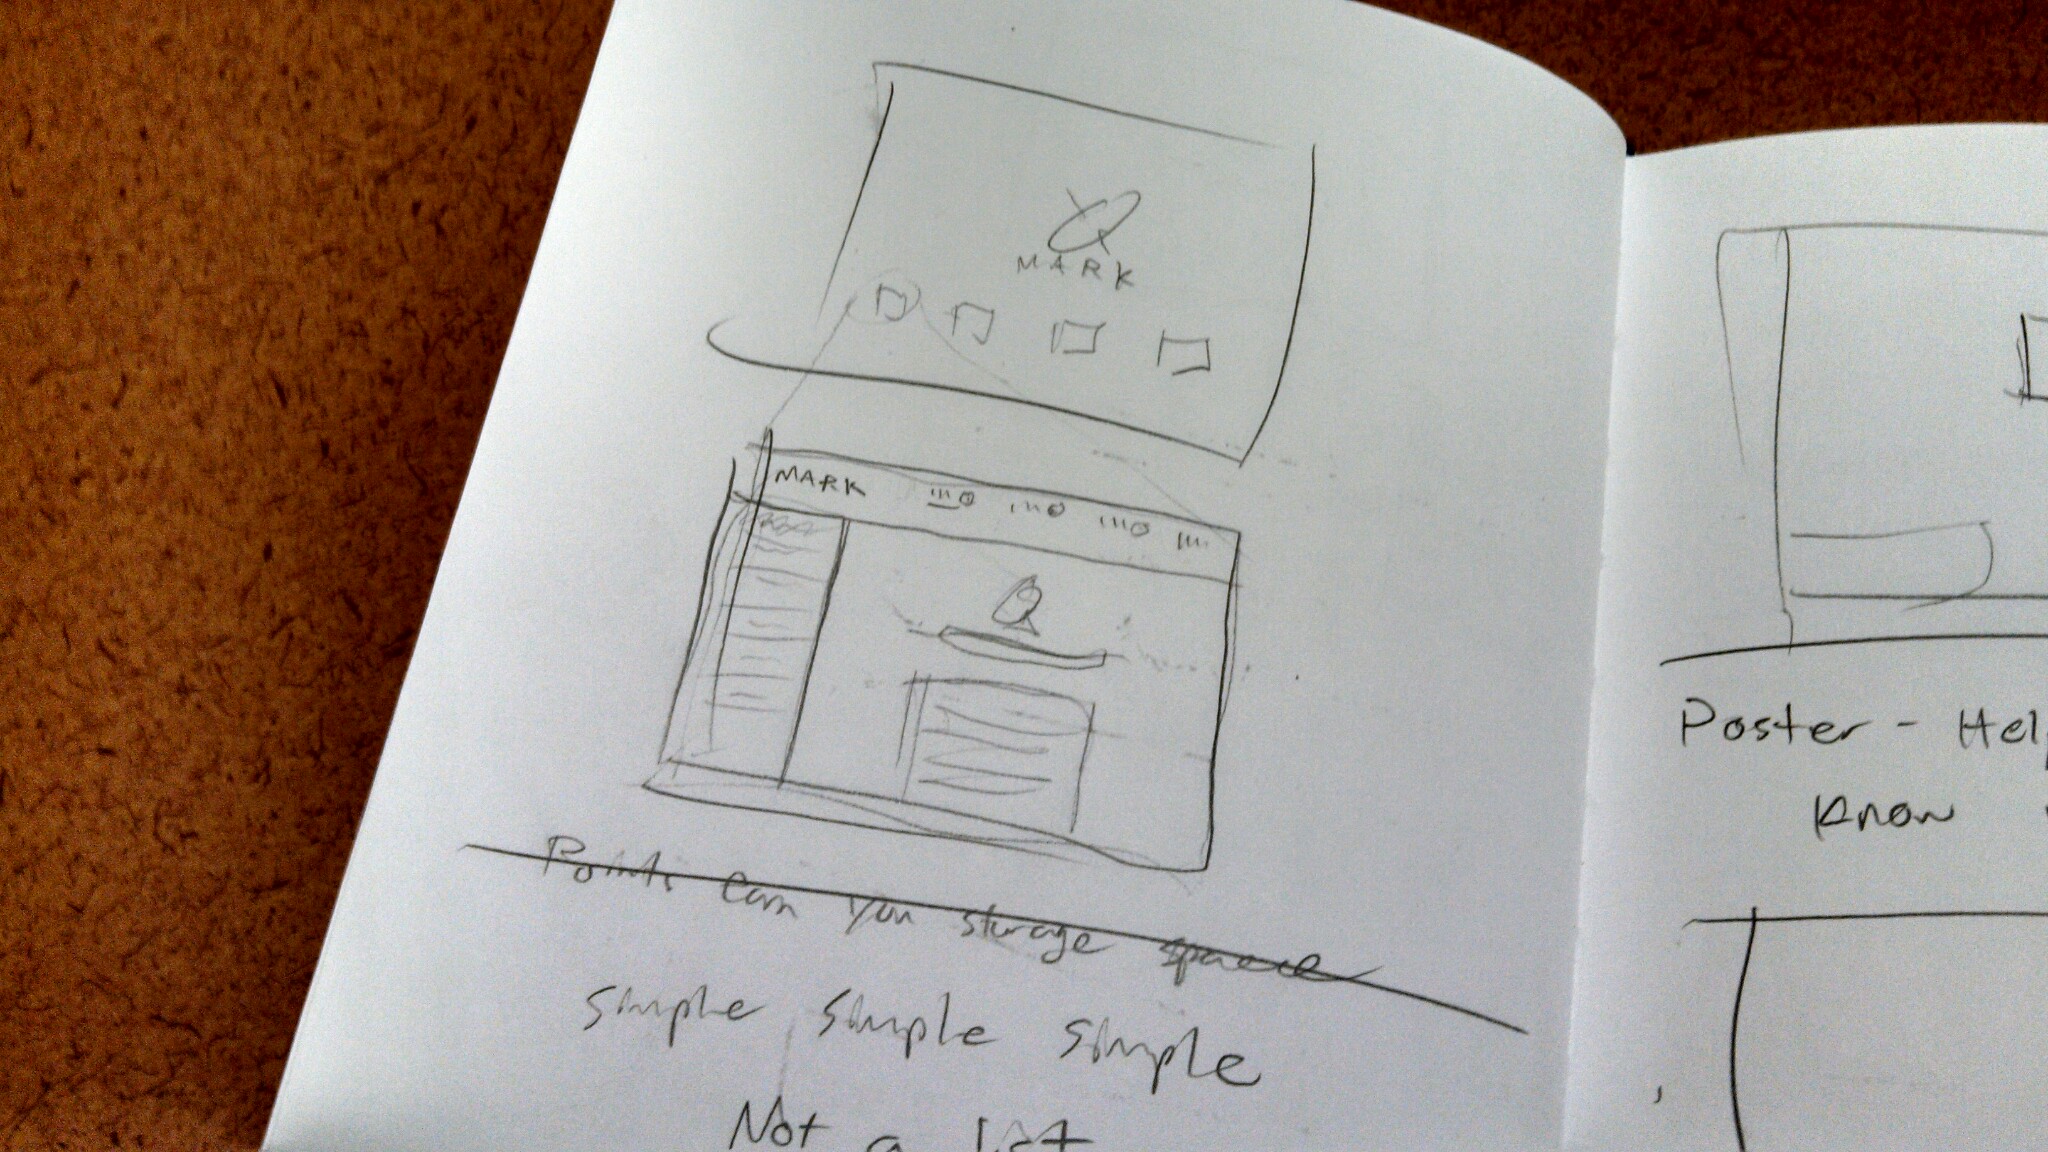 MARK
MARK
Points earn you storage space
simple simple simple
Not a lot
Poster - Hel
Know